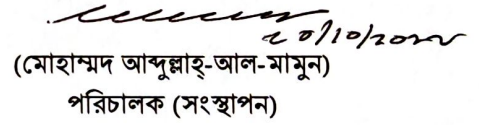 ২০/১০/২০২২
(মোহাম্মদ আব্দুল্লাহ্-আল-মামুন)
পরিচালক (সংস্থাপন)